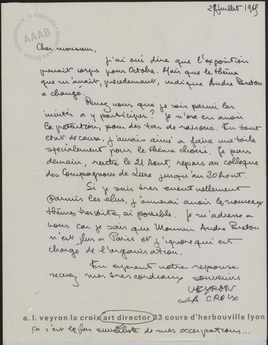 29 juillet 1965
AAAB
Cher monsieur,
J'ai ouï dire que l'exposition
prenait corps pour Octobre. Mais que le thème
que m'avait, précédemment, indiqué André Breton
a changé.
Pensez vous que je sois parmi les
invités à y participer ? Je n'ose en avoir
la prétention, pour des tas de raisons. En tout
état de cause, j'aurai aimé à faire une toile
spécialement pour le thème choisi. Je pars
demain, rentre le 21 Août, repars au colloque
des Compagnons de Lure jusqu'au 30 Août.
Si je suis éventuellement
parmi les élus, j'aimerai avoir le nouveau
thème très vite, si possible. Je m'adresse à
vous car je sais que Monsieur André Breton
n'est plus à Paris et j'ignore qui est
chargé de l'organisation.
En espérant votre réponse
recevez mes très cordiaux souvenirs
VEYRON
LA CROIX
a. l. veyron la croix art director 83 cours d'herbouville lyon
ça c'est la plus surréaliste de mes occupations...